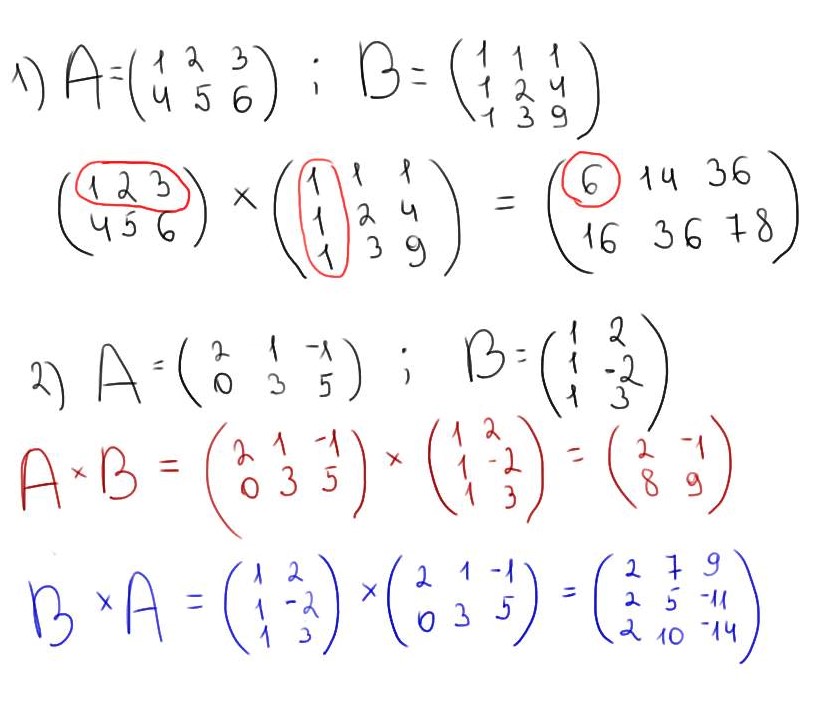 1) A = (1 2 3
4 5 6) ; B = (1 1 1
1 2 4
1 3 9)
(1 2 3
4 5 6) × (1 1 1
1 2 4
1 3 9) = (6 14 36
16 36 78)
2) A = (2 1 -1
0 3 5) ; B = (1 2
1 -2
1 3)
A × B = (2 1 -1
0 3 5) × (1 2
1 -2
1 3) = (2 -1
8 9)
B × A = (1 2
1 -2
1 3) × (2 1 -1
0 3 5) = (2 7 9
2 5 -11
2 10 -14)